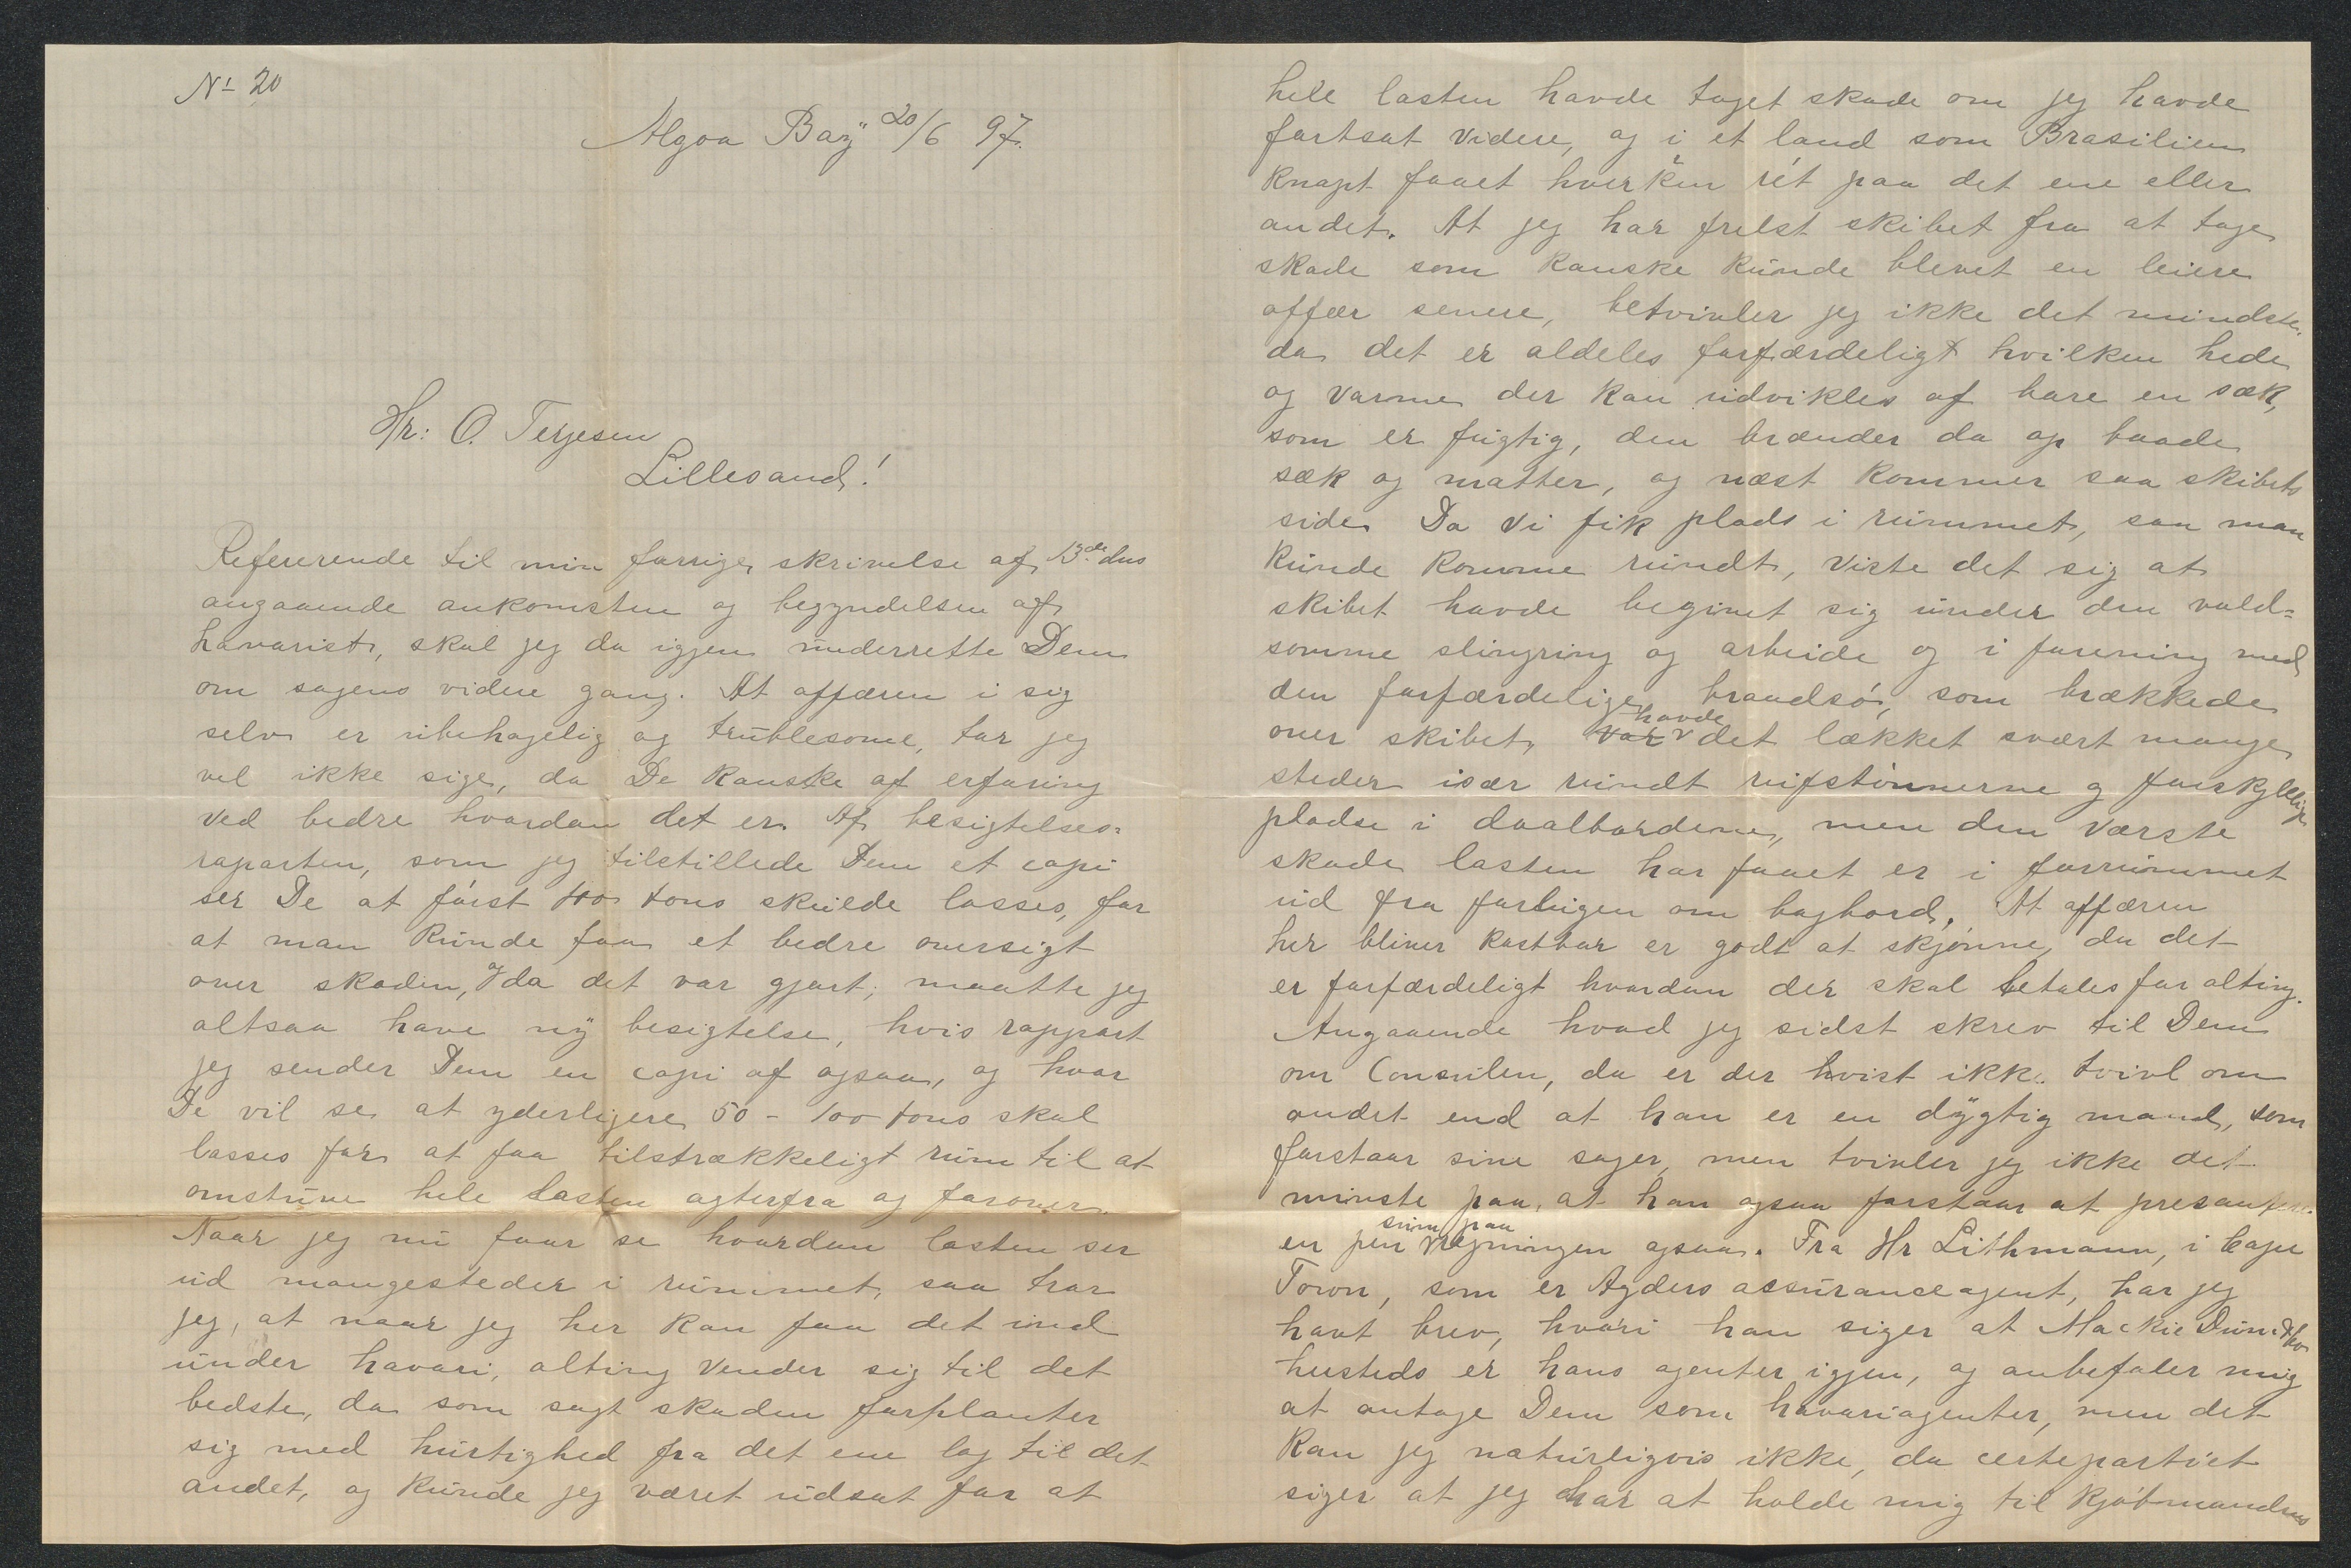 No 20
Algoa Bay 20/6 97.
Hr: O. Terjesen
Lillesand!
Refererende til min forrige skrivelse af 13de dns
angaaende ankomsten og begyndelsen af
havariet, skal jeg da igjen underrette Dem
om sagens videre gang. At affæren i sig
selv er ubehagelig og trublesome, tør jeg
vel ikke sige, da De kanske af erfaring
ved bedre hvordan det er. Af besigtelses=
raporten, som jeg tilstillede Dem et copi
ser De at først 100 tons skulde losses, for
at man kunde faa et bedre oversigt
over skaden, og da det var gjort, maatte jeg
altsaa have ny besigtelse, hvis rapport
jeg sender Dem en copi af ogsaa, og hvor
De vil se at yderligere 50 - 100 tons skal
losses for at faa tilstrækkeligt rum til at
omstuve hele lasten agterfra og forover.
Naar jeg nu faar se hvordan lasten ser
ud mangesteder i rummet, saa tror
jeg, at naar jeg her kan faa det ind
under havari, alting vender sig til det
bedste, da som sagt skaden forplanter
sig med hurtighed fra det ene lag til det
andet, og kunde jeg været udsat for at
hele lasten havde taget skade om jeg havde
fortsat videre, og i et land som Brasilien
knapt faaet hverken rét paa det ene eller
andet. At jeg har frelst skibet fra at tage
skade som kanske kunde blevet en leiere
affær senere, betvivler jeg ikke det mindste,
da det er aldeles forfærdeligt hvilken hede
og varme der kan udvikles af bare en sæk,
som er fugtig, den brænder da op baade
sæk og matter, og næst kommer saa skibets
side. Da vi fik plads i rummet, saa man
kunde komme rundt, viste det sig at
skibet havde begivet sig under den vold=
somme slingring og arbeide og i forening med
den forfærdelige braadsø, som brækkede
over skibet, var havde det lækket svært mange
steder især rundt rufstønnerne og forskjellige
pladse i daalbordene, men den værste
skade lasten har faaet er i forrummet
ud fra forlugen om bagbord. At affæren
her bliver kostbar er godt at skjønne, da det
er forfærdeligt hvordan der skal betales for alting.
Angaaende hvad jeg sidst skrev til Dem
om Consulen, da er der hvist ikke tvivl om
andet end at han er en dygtig mand, som
forstaar sine sager, men tvivler jeg ikke det
minste paa, at han ogsaa forstaar at presantere
en pen sum paa regningen ogsaa. Fra Hr Lithmann, i Cape
Town, som er Agders assuranceagent, har jeg
havt brev, hvori han siger at Mackie Dunn & Co
hersteds er hans agenter igjen, og anbefaler mig
at antage Dem som havariagenter, men det
kan jeg naturligvis ikke, da certepartiet
siger at jeg har at holde mig til kjøbmandens